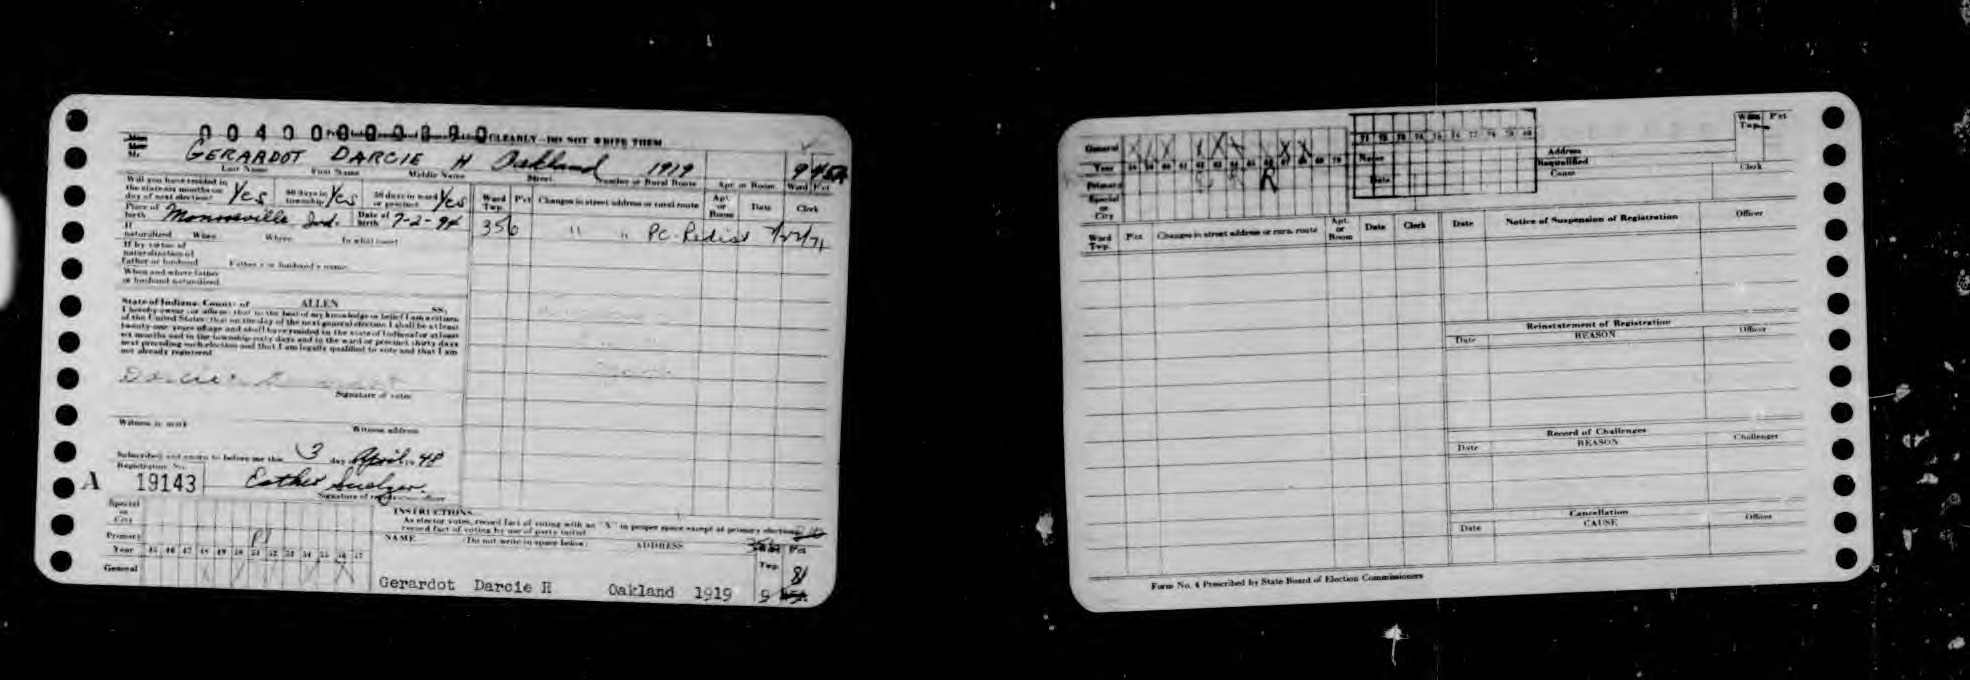 CLEARLY—DO NOT WRITE THEM
Mr. GERARDOT DARCIE H Oakland 1919 9
Last Name First Name Middle Name Street Number or Rural Route Apt. or Room Ward Pct
Will you have resided in the state six months on day of next election? Yes 60 days in township? Yes 30 days in ward or precinct Yes
Ward Twp. Pct Changes in street address or rural route Apt. or Room Date Clerk
Place of birth Monroeville Ind. Date of birth 7-2-94
356 " " PC-Redist 7/22/71
If naturalized When Where In what court
If by virtue of naturalization of Father or husband Father's or husband's name
When and where father or husband naturalized
State of Indiana, County of ALLEN SS:
I hereby swear (or affirm) that to the best of my knowledge or belief I am a citizen
of the United States; that on the day of the next general election I shall be at least
twenty-one years of age and shall have resided in the state of Indiana for at least
six months and in the township sixty days and in the ward or precinct thirty days
next preceding such election and that I am legally qualified to vote and that I am
not already registered
Darcie
Signature of voter
Witness to mark Witness address
Subscribed and sworn to before me this 3 day April 19 48
Registration No.
A 19143 Esther
Signature of registration officer
INSTRUCTIONS
As elector votes, record fact of voting with an "X" in proper space except at primary elections
record fact of voting by use of party initial
Special or City
Primary
Year 45 46 47 48 49 50 51 52 53 54 55 56 57
General
NAME (Do not write in space below) ADDRESS Ward Twp. Pct
Gerardot Darcie H Oakland 1919 9 81
General
Year 58 59 60 61 62 63 64 65 66 67 68 69 70
Primary R
Special or City
71 72 73 74 75 76 77 78 79 80
Name
Date
Address
Disqualified
Cause
Clerk
Ward Twp. Pct
Ward Twp. Pct. Changes in street address or rural route Apt. or Room Date Clerk
Date Notice of Suspension of Registration Officer
Reinstatement of Registration
Date REASON Officer
Record of Challenges
Date REASON Challenger
Cancellation
Date CAUSE Officer
Form No. 4 Prescribed by State Board of Election Commissioners